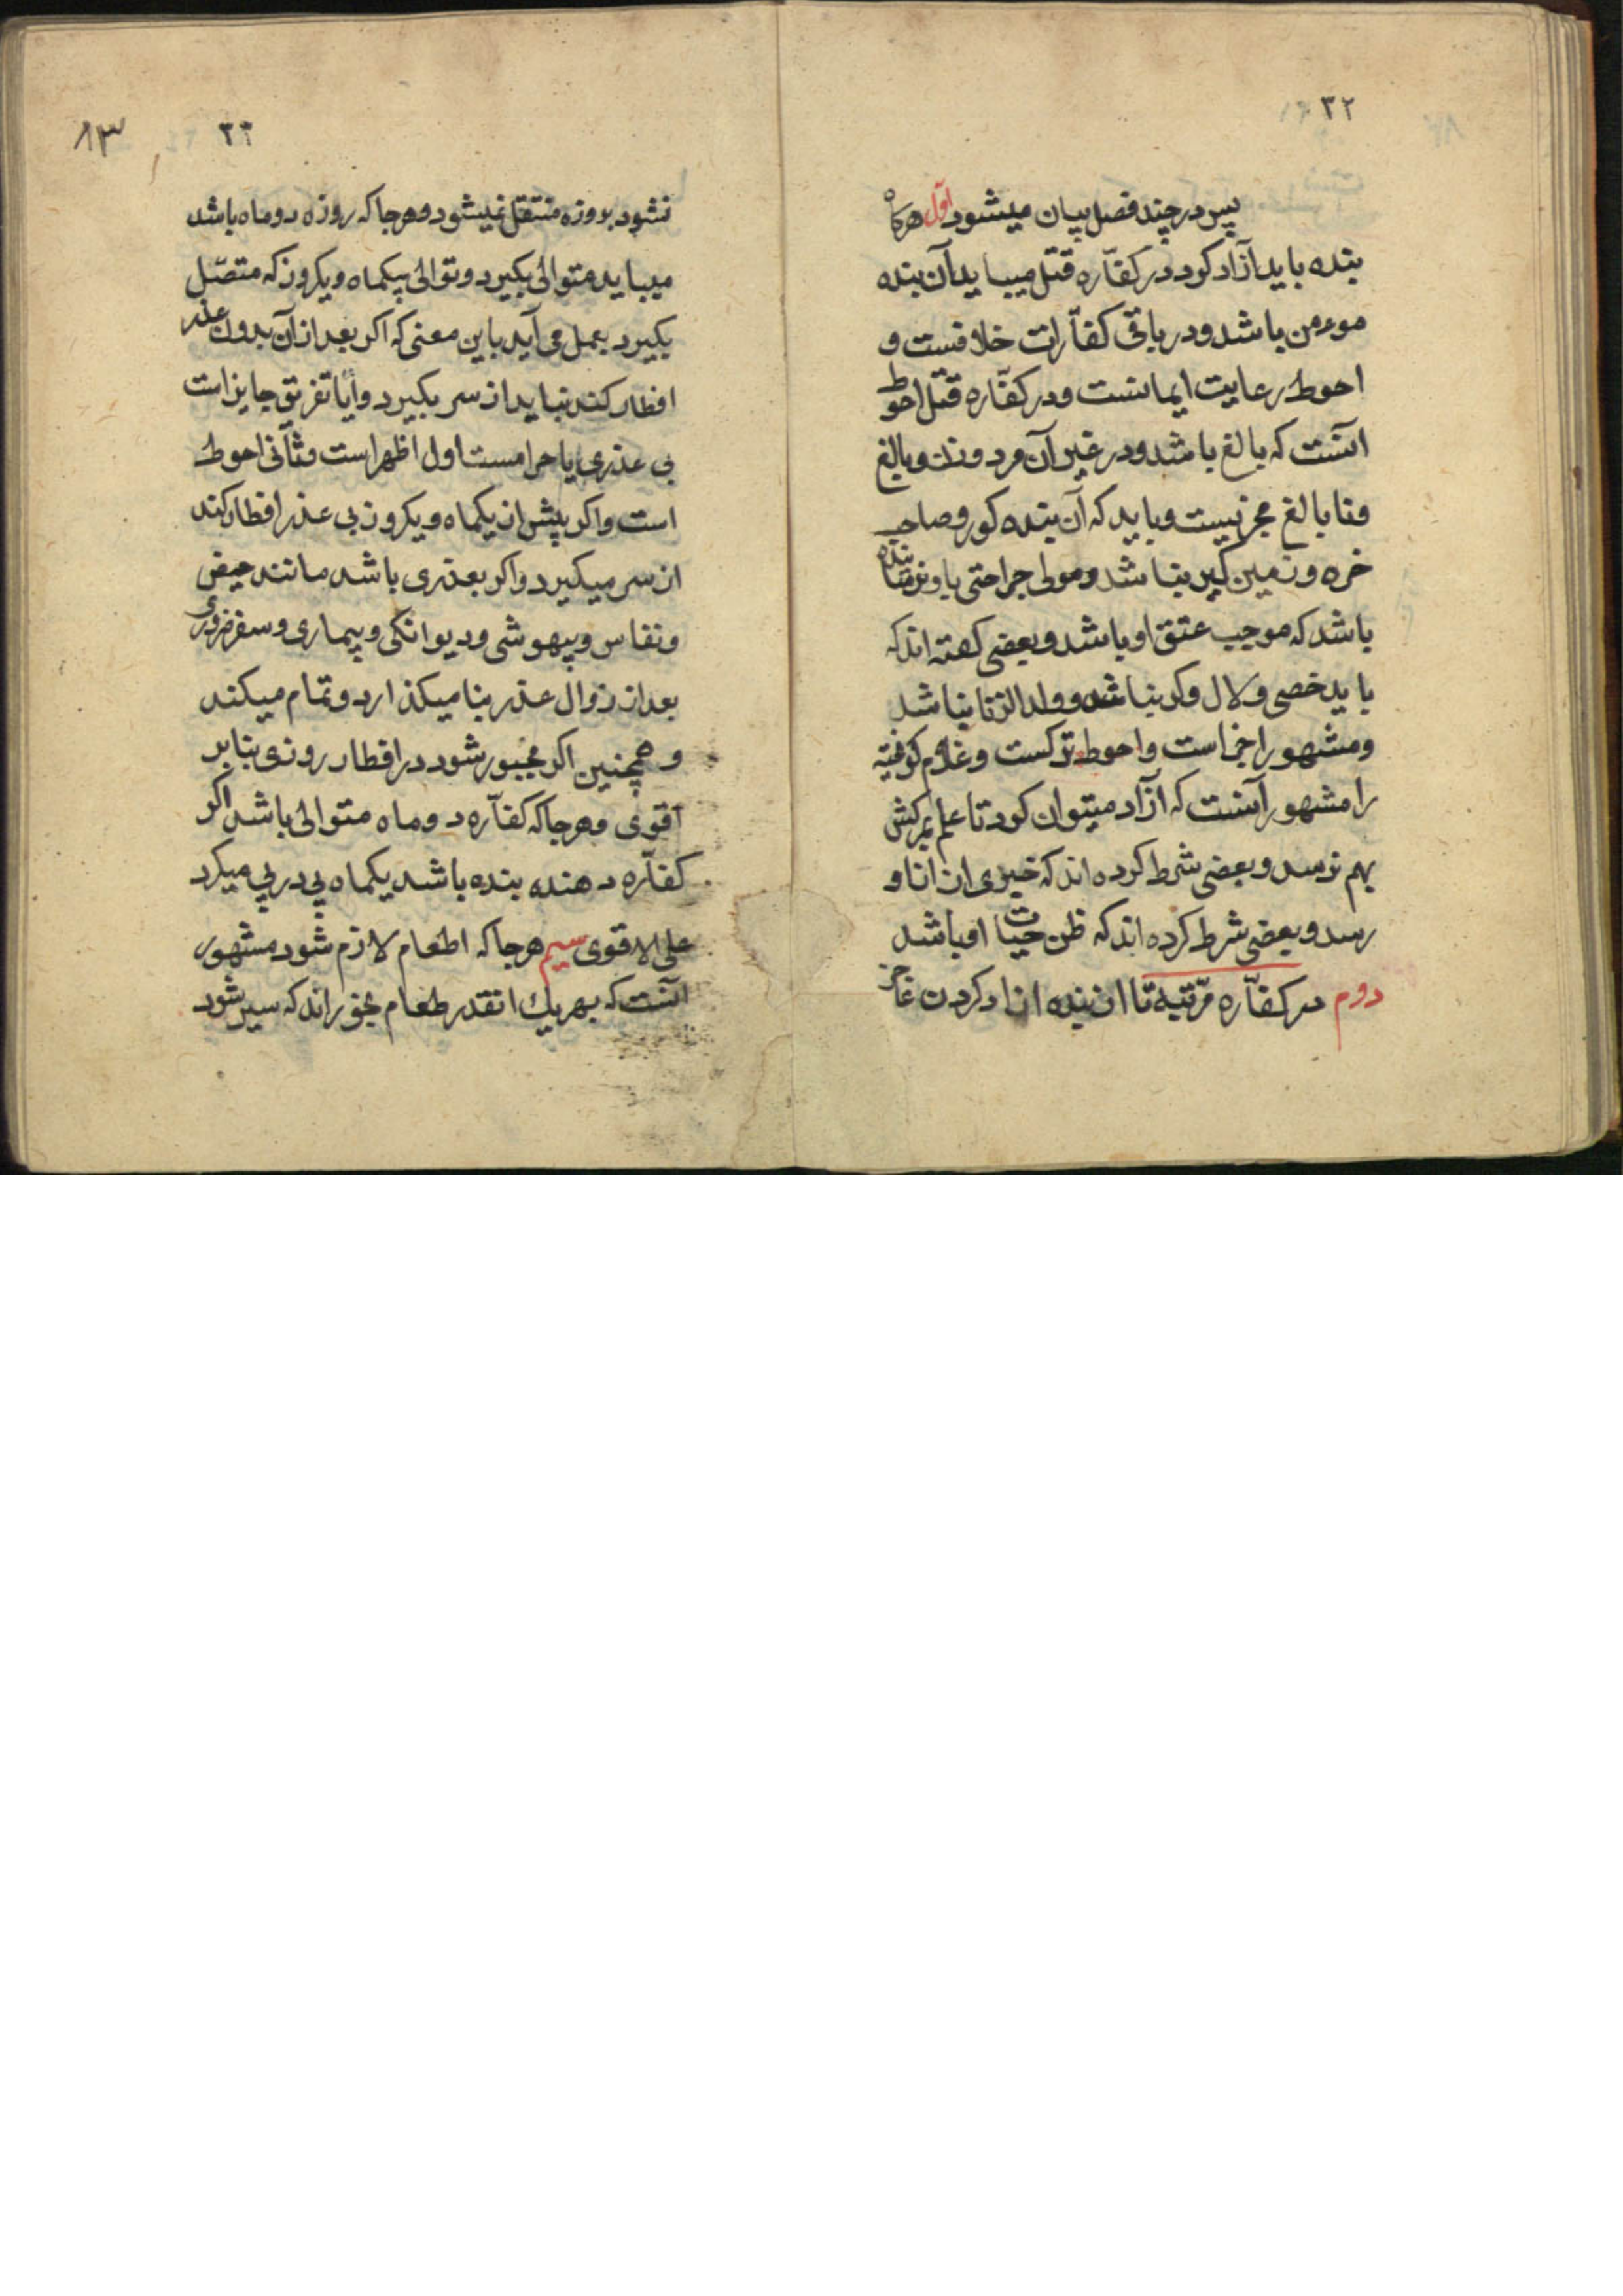 ۳۲
پس در چند فصل بیان میشود اوّل هرکاه
بنده باید آزاد کرد در کفّاره قتل میباید آن بنده
موءمن باشد و در باقی کفّارات خلافست و
احوط رعایت ایمانست و در کفّاره قتل احوط
آنست که بالغ باشد و در غیر آن مرد و زن و بالغ
و نابالغ مجزیست و باید که آن بنده کور و صاحب
خره و زمین کیر نباشد و مولی جراحتی باو نرسانده
باشد که موجب عتق او باشد و بعضی کفته اند که
باید خصی و لال و کر نباشد و ولد الزنا نباشد
و مشهور اجزاست و احوط ترکست و غلام کریخته
را مشهور آنست که آزاد میتوان کرد تا علم بمرکش
بهم نرسد و بعضی شرط کرده اند که خبری از او
رسد و بعضی شرط کرده اند که ظن حیات او باشد
دوم در کفّاره مرّتبه تا از بنده ازاد کردن عاجز
۳۳
۸۳
نشود بروزه منتقل نمیشود و هر جا که روزه دو ماه باشد
میباید متوالی بکیرد و توالی بیکماه و یکروز که متصّل
بکیرد بعمل می آید باین معنی که اکر بعد از آن بدون عذر
افطار کند نباید از سر بکیرد و آیا تفریق جایز است
بی عذری یا حرامست اول اظهر است و ثانی احوط
است و اکر پیش از یکماه و یکروز بی عذر افطار کند
از سر میکیرد و اکر بعذری باشد مانند حیض
و نفاس و بیهوشی و دیوانکی و بیماری و سفر ضروری
بعد از زوال عذر بنا میکذارد و تمام میکند
و همچنین اکر مجبور شود در افطار روزی بنا بر
اقوی و هر جا که کفّاره دو ماه متوالی باشد اکر
کفّاره دهنده بنده باشد یکماه پی در پی میکرد
علی الاقوی سیم هر جا که اطعام لازم شود مشهور
آنست که بهر یك انقدر طعام بخوراند که سیر شود